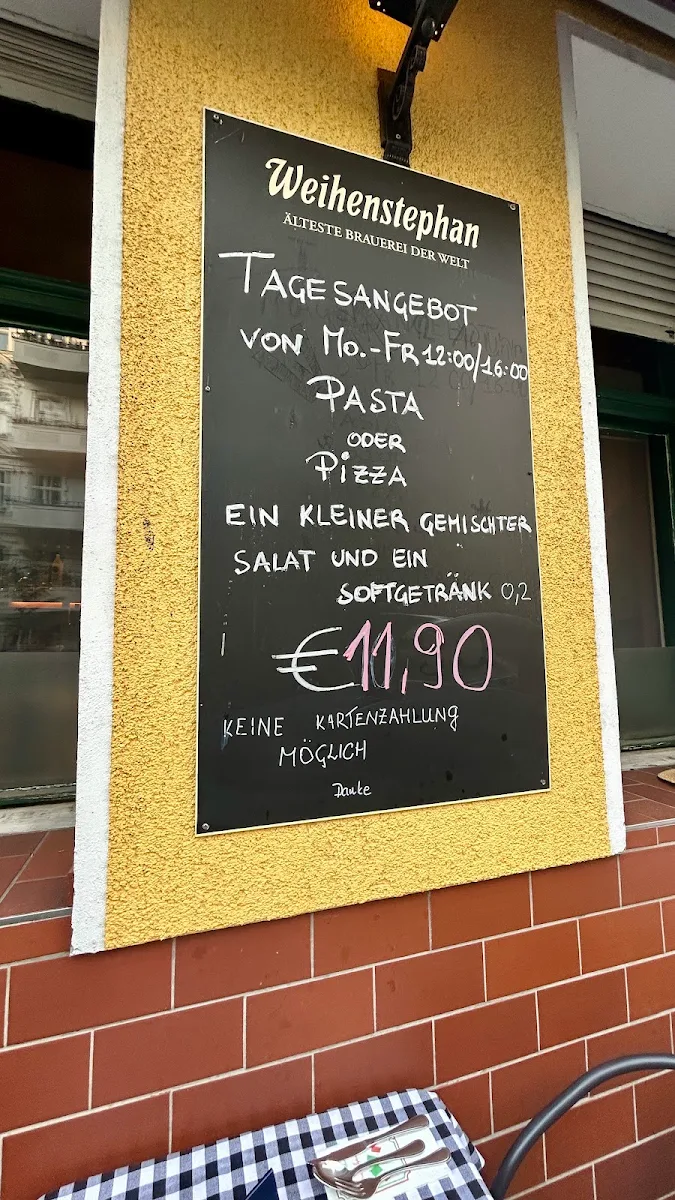 Weihenstephan
ÄLTESTE BRAUEREI DER WELT
TAGESANGEBOT
VON MO.-FR 12:00/16:00
PASTA
ODER
PiZZA
EIN KLEINER GEMISCHTER
SALAT UND EIN
SOFTGETRÄNK 0,2
€11,90
KEINE KARTENZAHLUNG
MÖGLICH
Danke